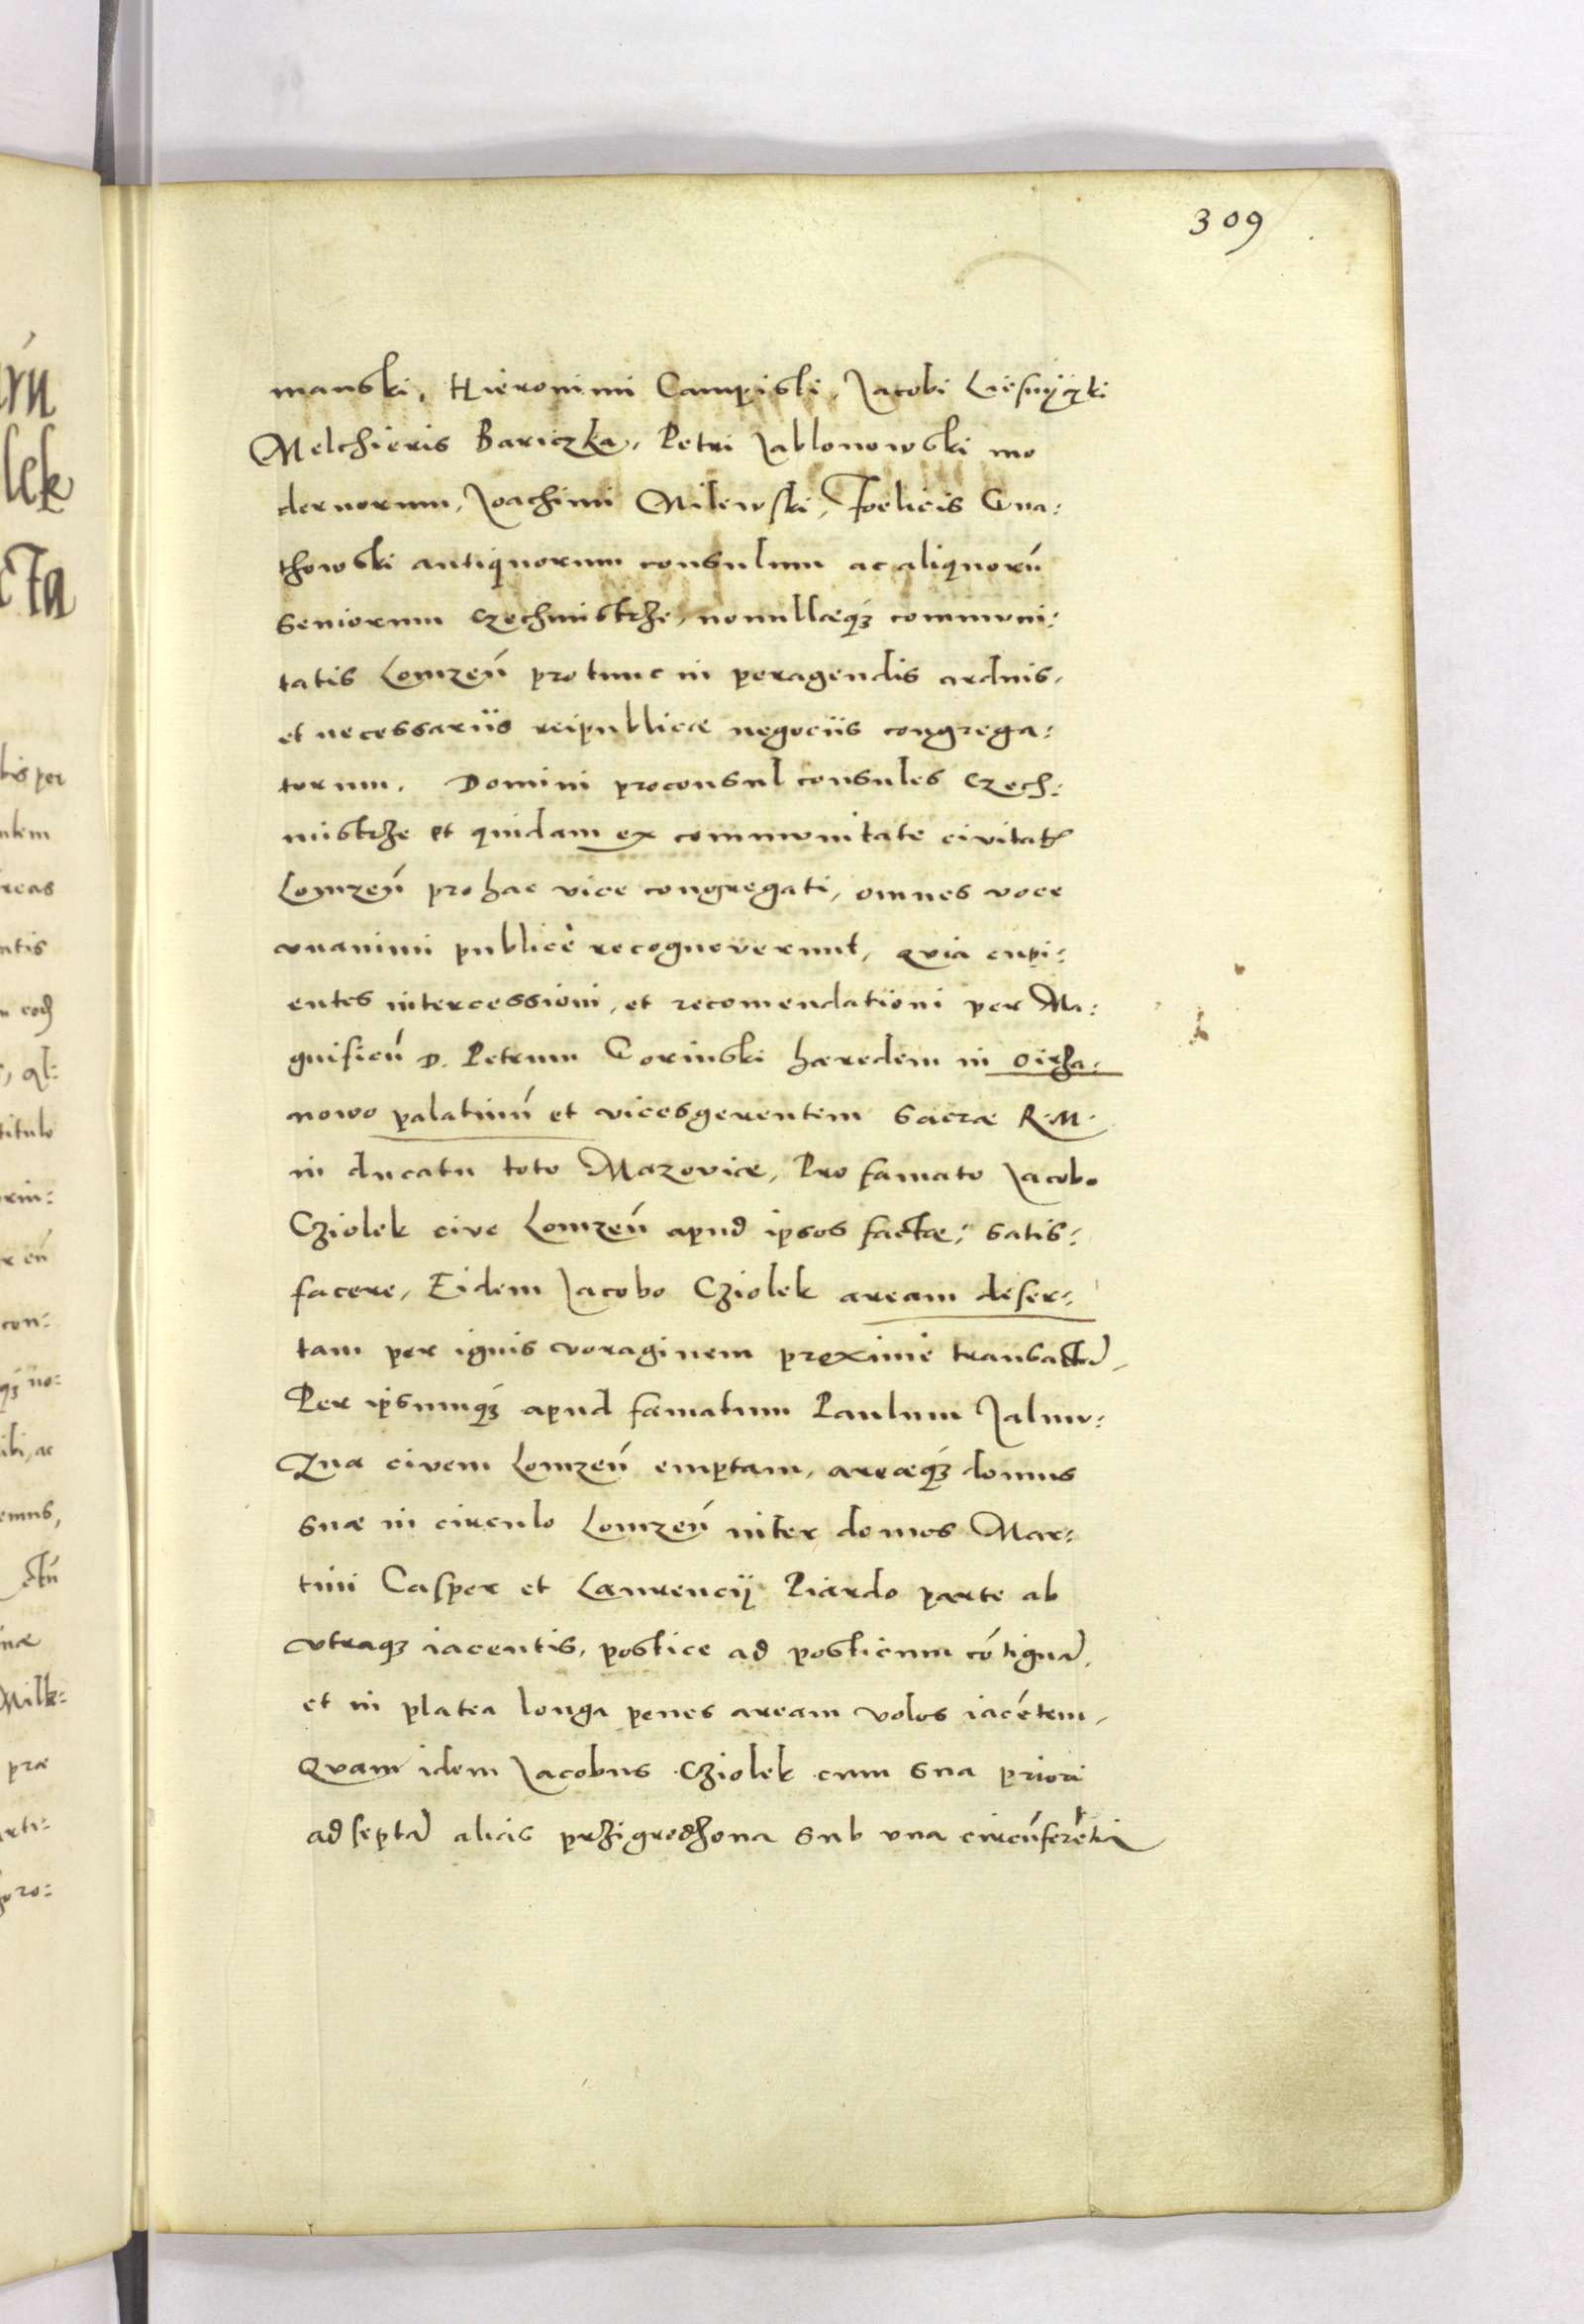 309
manski, Hieronimi Campiski, Jacobi Liesnÿczki
Melchieris Bariczka, Petri Jablonowski mo
dernorum, Joachimi Milewski, Foelicis Gna:
thowski antiquorum consulum ac aliquorū
seniorum czechmistrze, nonullaeqȝ communi:
tatis Lomzeń protunc in peragendis arduis,
et necessariis reipublicae negociis congrega:
torum. Domini proconsul consules czech:
mistrze et quidam ex communitate civitatꝭ
Lomzeń pro hac vice congregati, omnes voce
vnanimi publicè recognoverunt, qvia cupi:
entes intercessioni, et recomendationi per Ma:
gnificū D. Petrum Gorinski haeredem in Oirza:
nowo palatinū et vicesgerentem sacrae R. M.
in ducatu toto Mazoviae, Pro famato Jacobo
Cziolek cive Lomzeń apud ipsos factae; satis:
facere, Eidem Jacobo Cziolek aream deser:
tam per ignis voraginem proxime transactā,
Per ipsumqȝ apud famatum Paulum Jalmu:
zna civem Lomzeń emptam, areaeqȝ domus
suae in circulo Lomzeń inter domos Mar:
tini Casper et Laurencij Piardo parte ab
vtraqȝ iacentis, postice ad posticum cōtiguā,
et in platea longa penes aream volos iacētem,
Qvam idem Jacobus Cziolek cum sua priori
ad septā alias przigrodzona sub vna circūferētia
ctū
emus,
titulo
prae